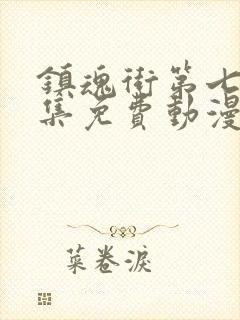 鎮魂街第七
集免費動漫
菜卷淚